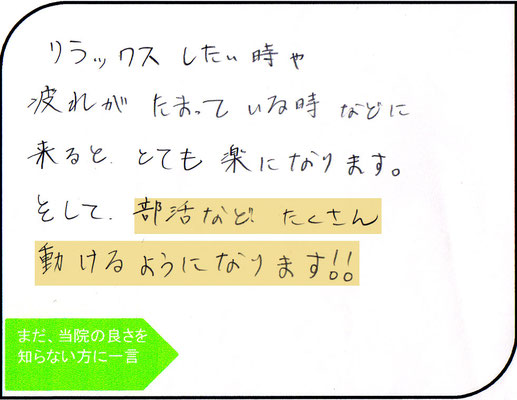 リラックスしたい時や
疲れがたまっている時などに
来ると、とても楽になります。
そして、部活などたくさん
動けるようになります!!
まだ、当院の良さを
知らない方に一言